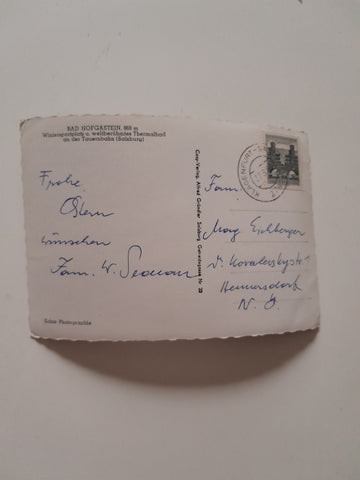 BAD HOFGASTEIN, 869 m
Wintersportplatz u. weltberühmtes Thermalbad
an der Tauernbahn (Salzburg)
Frohe
Ostern
wünschen
Fam. W.
Echte Photographie
Cosy-Verlag, Alfred Gründler Salzburg, Getreidegasse Nr. 22
KLAGENFURT
Fam.
Mag. Eichberger
Dr. Kovalevsky str.
Hennersdorf
N. Ö.